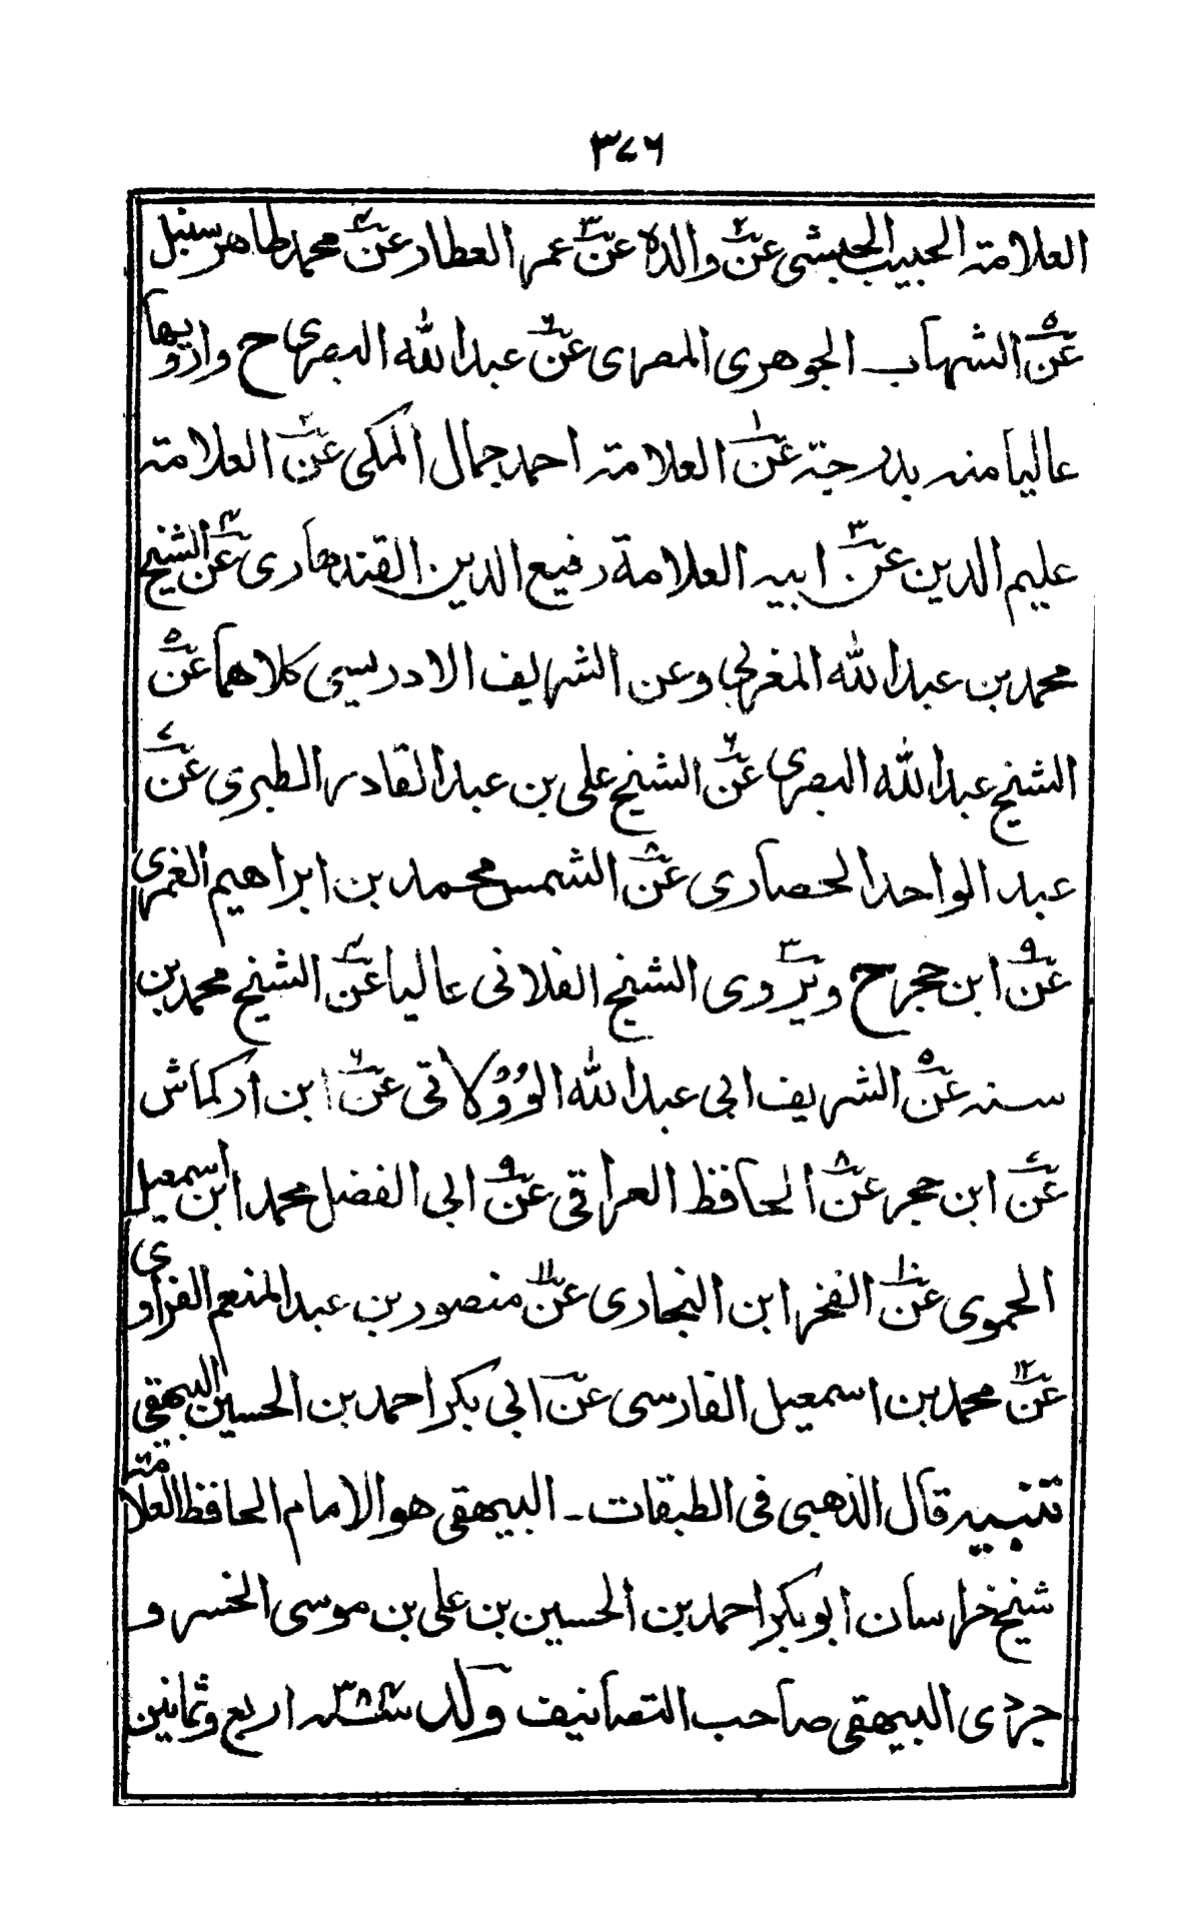 ٣٧٦
العلامة الحبيب الحبشي عن٢ والده عن٣ عمر العطار عن٤ محمد طاهر سنبل
عن٥ الشهاب الجوهرى المصرى عن٦ عبد الله البصرى ح وارويها
عاليا منه بدرجة عن١ العلامة احمد جمال المكى عن٢ العلامة
عليم الدين عن٣ ابيه العلامة رفيع الدين القندهارى عن٤ الشيخ
محمد بن عبد الله المغربى وعن الشريف الادريسى كلاهما عن٥
الشيخ عبد الله البصرى عن٦ الشيخ على بن عبد القادر الطبرى عن٧
عبد الواحد الحصارى عن٨ الشمس محمد بن ابراهيم الغمرى
عن٩ ابن حجر ح ويروى٣ الشيخ الفلانى عاليا عن٤ الشيخ محمد بن
سنه عن٥ الشريف ابى عبد الله الوولاتى عن٦ ابن اركماش
عن٧ ابن حجر عن٨ الحافظ العراقى عن٩ ابى الفضل محمد ابن اسمعيل
الحموى عن١٠ الفخر ابن النجارى عن١١ منصور بن عبد المنعم الفراوى
عن١٢ محمد بن اسمعيل الفارسى عن ابى بكر احمد بن الحسين البيهقى
تنبيه قال الذهبى فى الطبقات ـ البيهقى هو الامام الحافظ العلامة
شيخ خراسان ابو بكر احمد بن الحسين بن على بن موسى الخسرو
جردى البيهقى صاحب التصانيف ولد سنة ٣٨٤ه اربع وثمانين